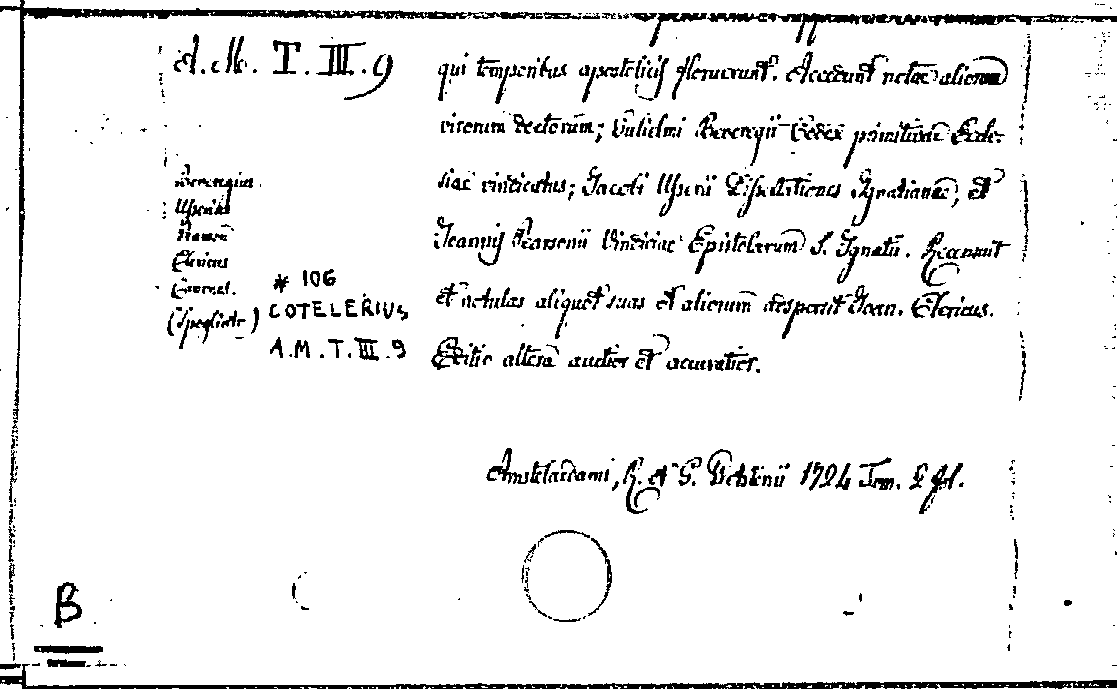 A. M. T. III. 9
qui temporibus apostolicis floruerunt. Accedunt notae aliorum
virorum doctorum; Gulielmi Beveregii Codex primitivae Eccle-
siae vindicatus; Jacobi Usserii Dissertationes Ignatianae, et
Joannis Pearsonii Vindiciae Epistolarum S. Ignatii. Recensuit
et notulas aliquot suas et aliorum aspersit Joan. Clericus.
Editio altera auctior et accuratior.
Amstelaedami, R. et G. Wetstenii 1724 Tom. 2 fol.
Beveregius
Usserius
Clericus
* 106
COTELERIUS
A.M.T.III.9
B